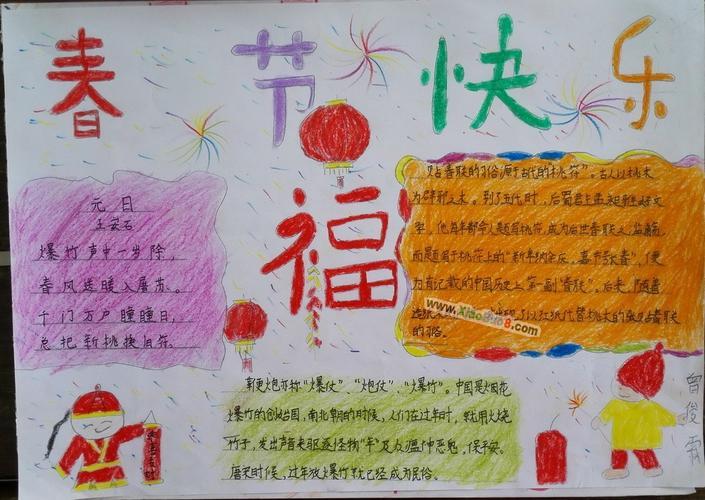 春节快乐
福
元日
王安石
爆竹声中一岁除,
春风送暖入屠苏。
千门万户曈曈日,
总把新桃换旧符。
贴春联的习俗源于古代的"桃符"。古人以桃木
为辟邪之木。到了五代时,后蜀君主孟昶雅好文
学,他每年都命人题写桃符,成为后世春联之滥觞,
而题写于桃符上的"新年纳余庆,嘉节号长春",便
为有记载的中国历史上第一副"春联"。后来,随着
造纸 了以红纸代替桃木的张贴春联
的习俗。
www.xiaobao8.com
新更炮亦称"爆仗"、"炮仗"、"爆竹"。中国是烟花
爆竹的创始国,南北朝的时候,人们在过年时,就用火烧
竹子,发出声音来驱逐怪物"年"及众瘟神恶鬼,保平安。
唐宋时候,过年放爆竹就已经成为民俗。
曾俊